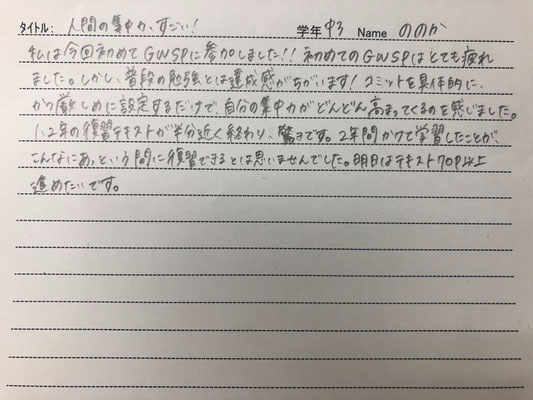 タイトル: 人間の集中力、すごい! 学年 中3 Name ののか
私は今回初めてGWSPに参加しました!! 初めてのGWSPはとても疲れ
ました。しかし、普段の勉強とは達成感がちがいます! コミットを具体的に、
かつ厳しめに設定するだけで、自分の集中力がどんどん高まってくるのを感じました。
1、2年の復習テキストが半分近く終わり、驚きです。2年間かけて学習したことが、
こんなにあっという間に復習できるとは思いませんでした。明日はテキスト70P以上
進めたいです。